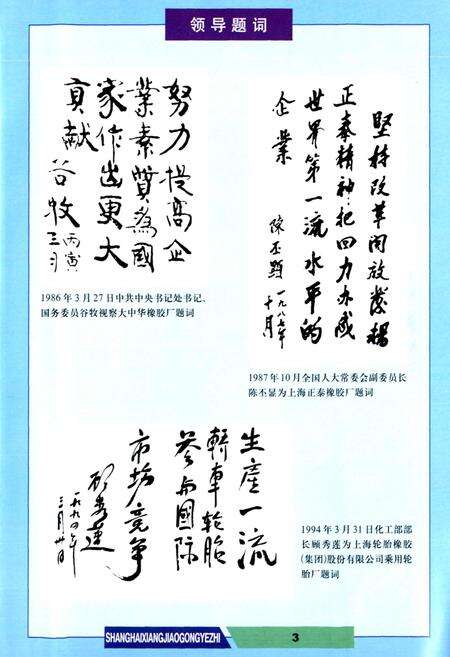 领导题词
努力提高企
業素質為國
家作出更大
貢献
谷牧
丙寅
三月
1986年3月27日中共中央书记处书记、
国务委员谷牧视察大中华橡胶厂题词
坚持改革開放發揚
正泰精神把回力办成
世界第一流水平的
企業
陳丕顯
一九八七年
十月
1987年10月全国人大常委会副委员长
陈丕显为上海正泰橡胶厂题词
生産一流
轎車轮胎
参与國际
市场竞争
顾秀莲
一九九四年
三月卅一日
1994年3月31日化工部部
长顾秀莲为上海轮胎橡胶
(集团)股份有限公司乘用轮
胎厂题词
SHANGHAIXIANGJIAOGONGYEZHI
3